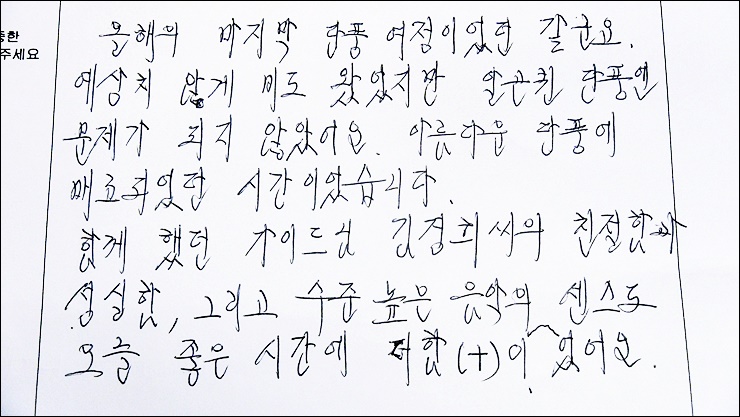 중한
주세요
올해의 마지막 단풍 여정이었던 같군요.
예상치 않게 비도 왔었지만 알근퀸 단풍엔
문제가 되지 않았어요. 아름다운 단풍에
매료되었던 시간이었습니다.
함께 했던 가이드님 김경희씨의 친절함과
성실함, 그리고 수준 높은 음악의 센스도
오늘 좋은 시간에 더함(+)이 있었어요.